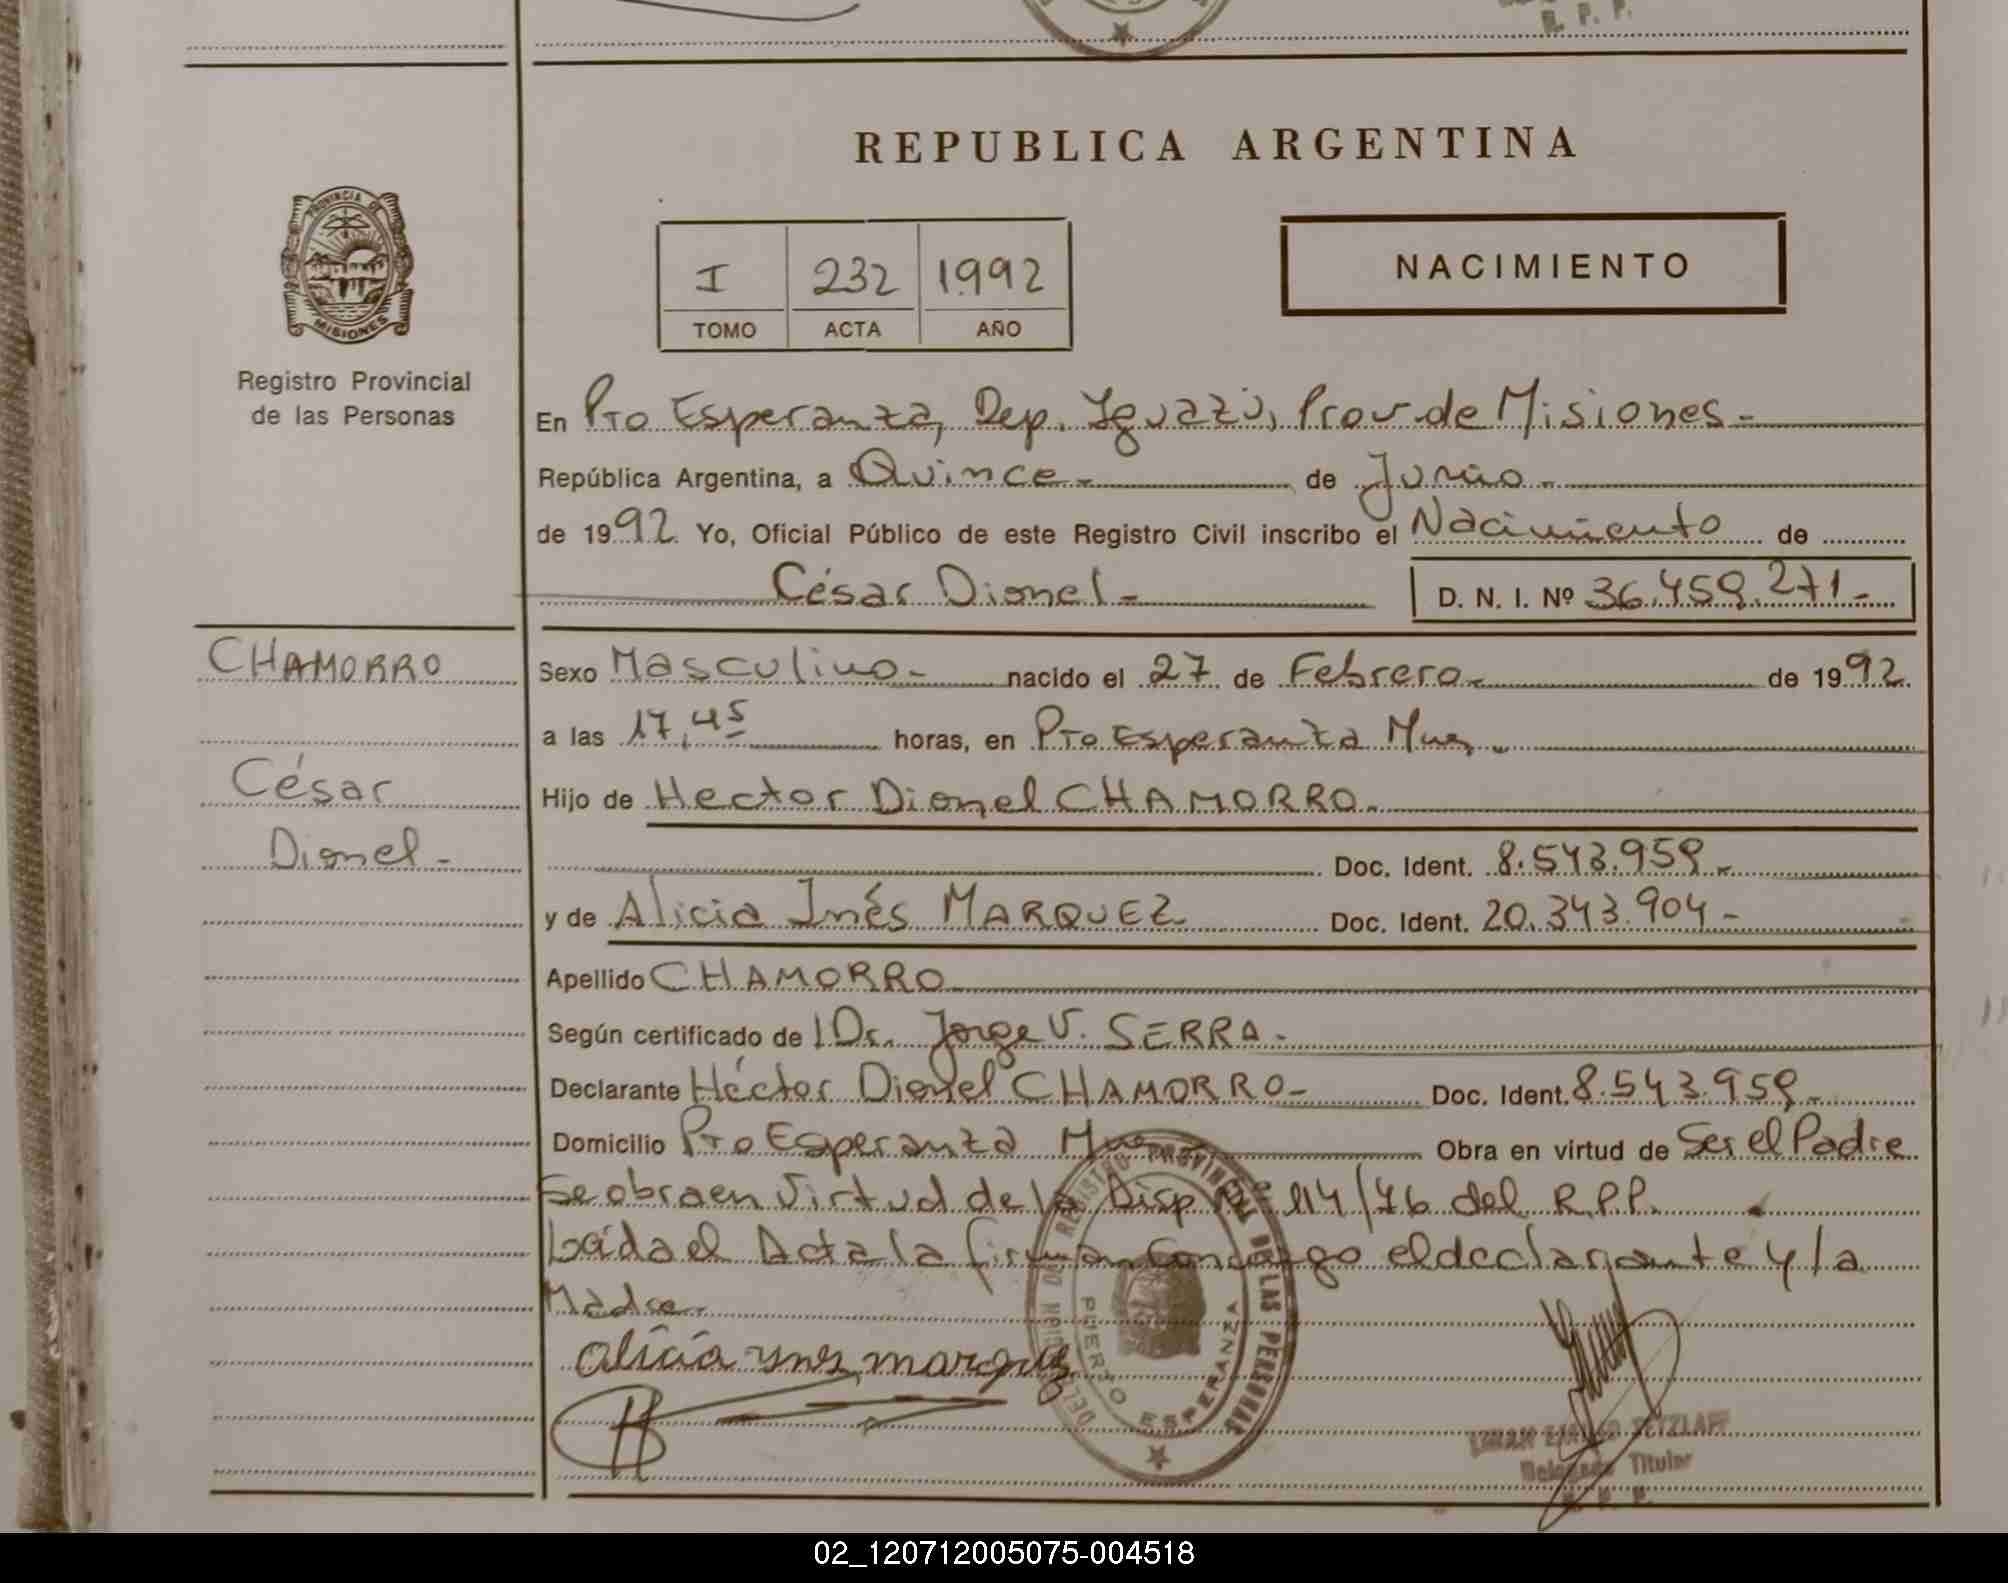 R. P. P.
REPUBLICA ARGENTINA
PROVINCIA DE
MISIONES
Registro Provincial
de las Personas
I 232 1992
TOMO ACTA AÑO
NACIMIENTO
En Pto Esperanza, Dep. Iguazú, Prov de Misiones.-
República Argentina, a Quince.- de Junio.-
de 1992. Yo, Oficial Público de este Registro Civil inscribo el Nacimiento de
César Dionel.-
D. N. I. Nº 36.459.271.-
CHAMORRO
César
Dionel.-
Sexo Masculino.- nacido el 27 de Febrero.- de 1992.
a las 17,45 horas, en Pto Esperanza Mnes.-
Hijo de Hector Dionel CHAMORRO.
Doc. Ident. 8.543.959.-
y de Alicia Inés MARQUEZ Doc. Ident. 20.343.904.-
Apellido CHAMORRO
Según certificado de Dr. Jorge V. SERRA.
Declarante Héctor Dionel CHAMORRO.- Doc. Ident. 8.543.959.-
Domicilio Pto Esperanza Mnes Obra en virtud de Ser el Padre
Se obra en Virtud de la Disp Nº 114/76 del R.P.P.
Leída el Acta la firman Conmigo el declarante y la
Madre.
alicia ynes marquez
DELEGACION DEL REGISTRO PROVINCIAL DE LAS PERSONAS
PUERTO ESPERANZA
TETZLAFF
Delegado Titular
R. P. P.
02_120712005075-004518